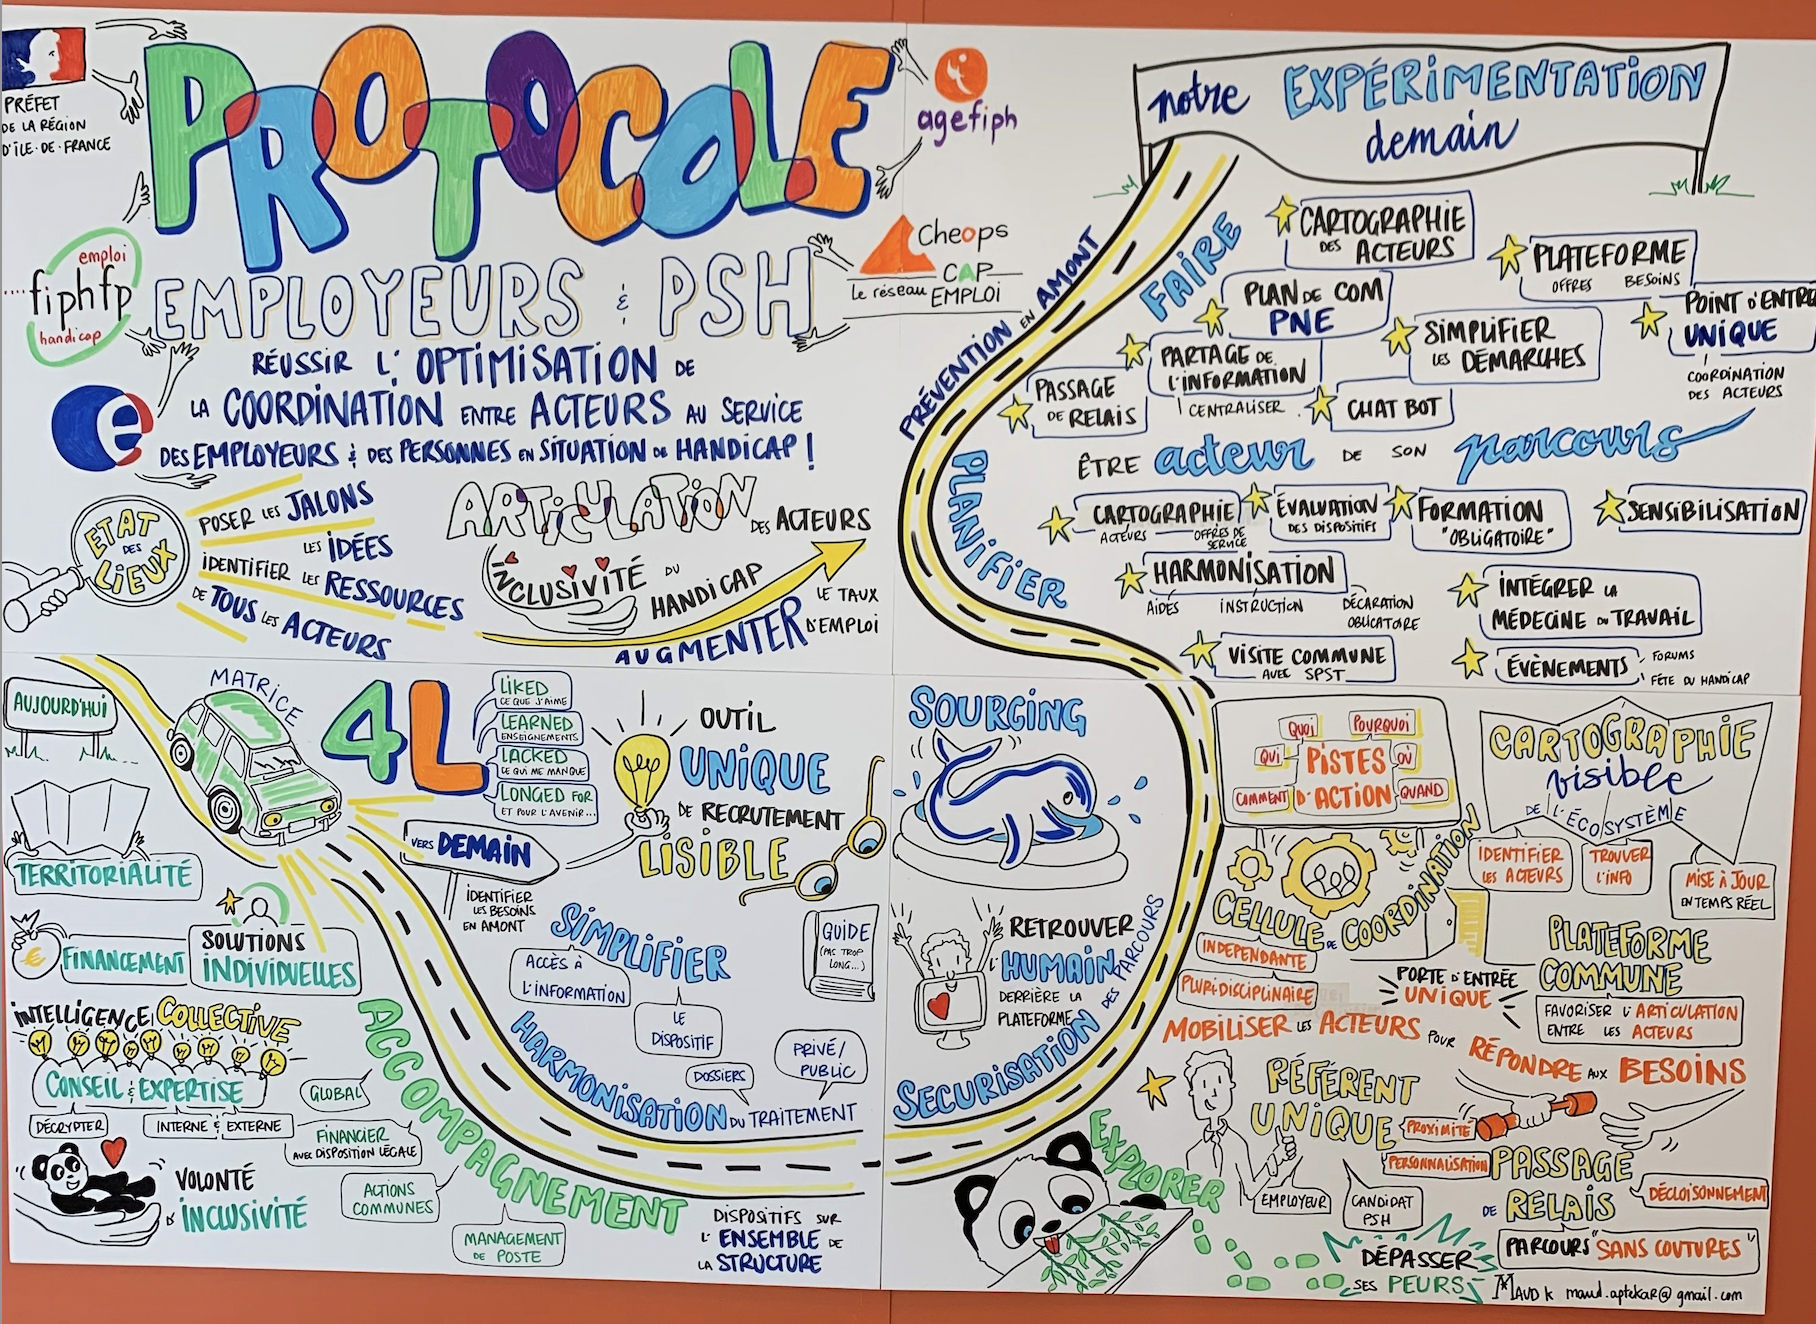 PRÉFET
DE LA RÉGION
D'ÎLE-DE-FRANCE
PROTOCOLE
agefiph
emploi
fiphfp
handicap
Cheops
CAP
Le réseau EMPLOI
EMPLOYEURS & PSH
RÉUSSIR L'OPTIMISATION DE
LA COORDINATION ENTRE ACTEURS AU SERVICE
DES EMPLOYEURS & DES PERSONNES EN SITUATION DE HANDICAP !
e
ETAT
DES
LIEUX
POSER LES JALONS
LES IDÉES
IDENTIFIER LES RESSOURCES
DE TOUS LES ACTEURS
ARTICULATION
DES ACTEURS
INCLUSIVITÉ DU
HANDICAP
AUGMENTER
LE TAUX
D'EMPLOI
notre EXPÉRIMENTATION
demain
PRÉVENTION EN AMONT
FAIRE
CARTOGRAPHIE
DES ACTEURS
PLATEFORME
OFFRES BESOINS
PLAN DE COM
PNE
POINT D'ENTRÉ
UNIQUE
COORDINATION
DES ACTEURS
SIMPLIFIER
LES DÉMARCHES
PARTAGE DE
L'INFORMATION
CENTRALISER
PASSAGE
DE RELAIS
CHAT BOT
ÊTRE acteur DE SON parcours
PLANIFIER
CARTOGRAPHIE
ACTEURS
OFFRES DE
SERVICE
ÉVALUATION
DES DISPOSITIFS
FORMATION
"OBLIGATOIRE"
SENSIBILISATION
HARMONISATION
AIDES
INSTRUCTION
DÉCARATION
OBLIGATOIRE
INTÉGRER LA
MÉDECINE DU TRAVAIL
VISITE COMMUNE
AVEC SPST
ÉVÈNEMENTS
FORUMS
FÊTE DU HANDICAP
AUJOURD'HUI
MATRICE
4L
LIKED
CE QUE J'AIME
LEARNED
ENSEIGNEMENTS
LACKED
CE QUI ME MANQUE
LONGED FOR
ET POUR L'AVENIR...
VERS DEMAIN
IDENTIFIER
LES BESOINS
EN AMONT
OUTIL
UNIQUE
DE RECRUTEMENT
LISIBLE
TERRITORIALITÉ
€
FINANCEMENT
SOLUTIONS
INDIVIDUELLES
INTELLIGENCE COLLECTIVE
CONSEIL & EXPERTISE
DÉCRYPTER
INTERNE & EXTERNE
VOLONTÉ
D'INCLUSIVITÉ
ACCOMPAGNEMENT
GLOBAL
FINANCIER
AVEC DISPOSITION LÉGALE
ACTIONS
COMMUNES
MANAGEMENT
DE POSTE
DISPOSITIFS SUR
L'ENSEMBLE DE
LA STRUCTURE
SIMPLIFIER
ACCÈS À
L'INFORMATION
LE
DISPOSITIF
GUIDE
(PAS TROP
LONG...)
HARMONISATION DU TRAITEMENT
DOSSIERS
PRIVÉ/
PUBLIC
SOURCING
RETROUVER
L'HUMAIN
DERRIÈRE LA
PLATEFORME
SECURISATION DES PARCOURS
EXPLORER
PISTES
D'ACTION
QUI
QUOI
POURQUOI
OÙ
QUAND
COMMENT
CARTOGRAPHIE
visible
DE L'ÉCOSYSTÈME
IDENTIFIER
LES ACTEURS
TROUVER
L'INFO
MISE À JOUR
EN TEMPS RÉEL
CELLULE DE COORDINATION
INDEPENDANTE
PLURIDISCIPLINAIRE
PORTE D'ENTRÉE
UNIQUE
PLATEFORME
COMMUNE
FAVORISER L'ARTICULATION
ENTRE LES ACTEURS
MOBILISER LES ACTEURS POUR RÉPONDRE AUX BESOINS
RÉFÉRENT
UNIQUE
PROXIMITÉ
PERSONNALISATION
EMPLOYEUR
CANDIDAT
PSH
PASSAGE
DE RELAIS
DÉCLOISONNEMENT
PARCOURS "SANS COUTURES"
DÉPASSER
SES PEURS
MAUD K maud.aptekar@gmail.com